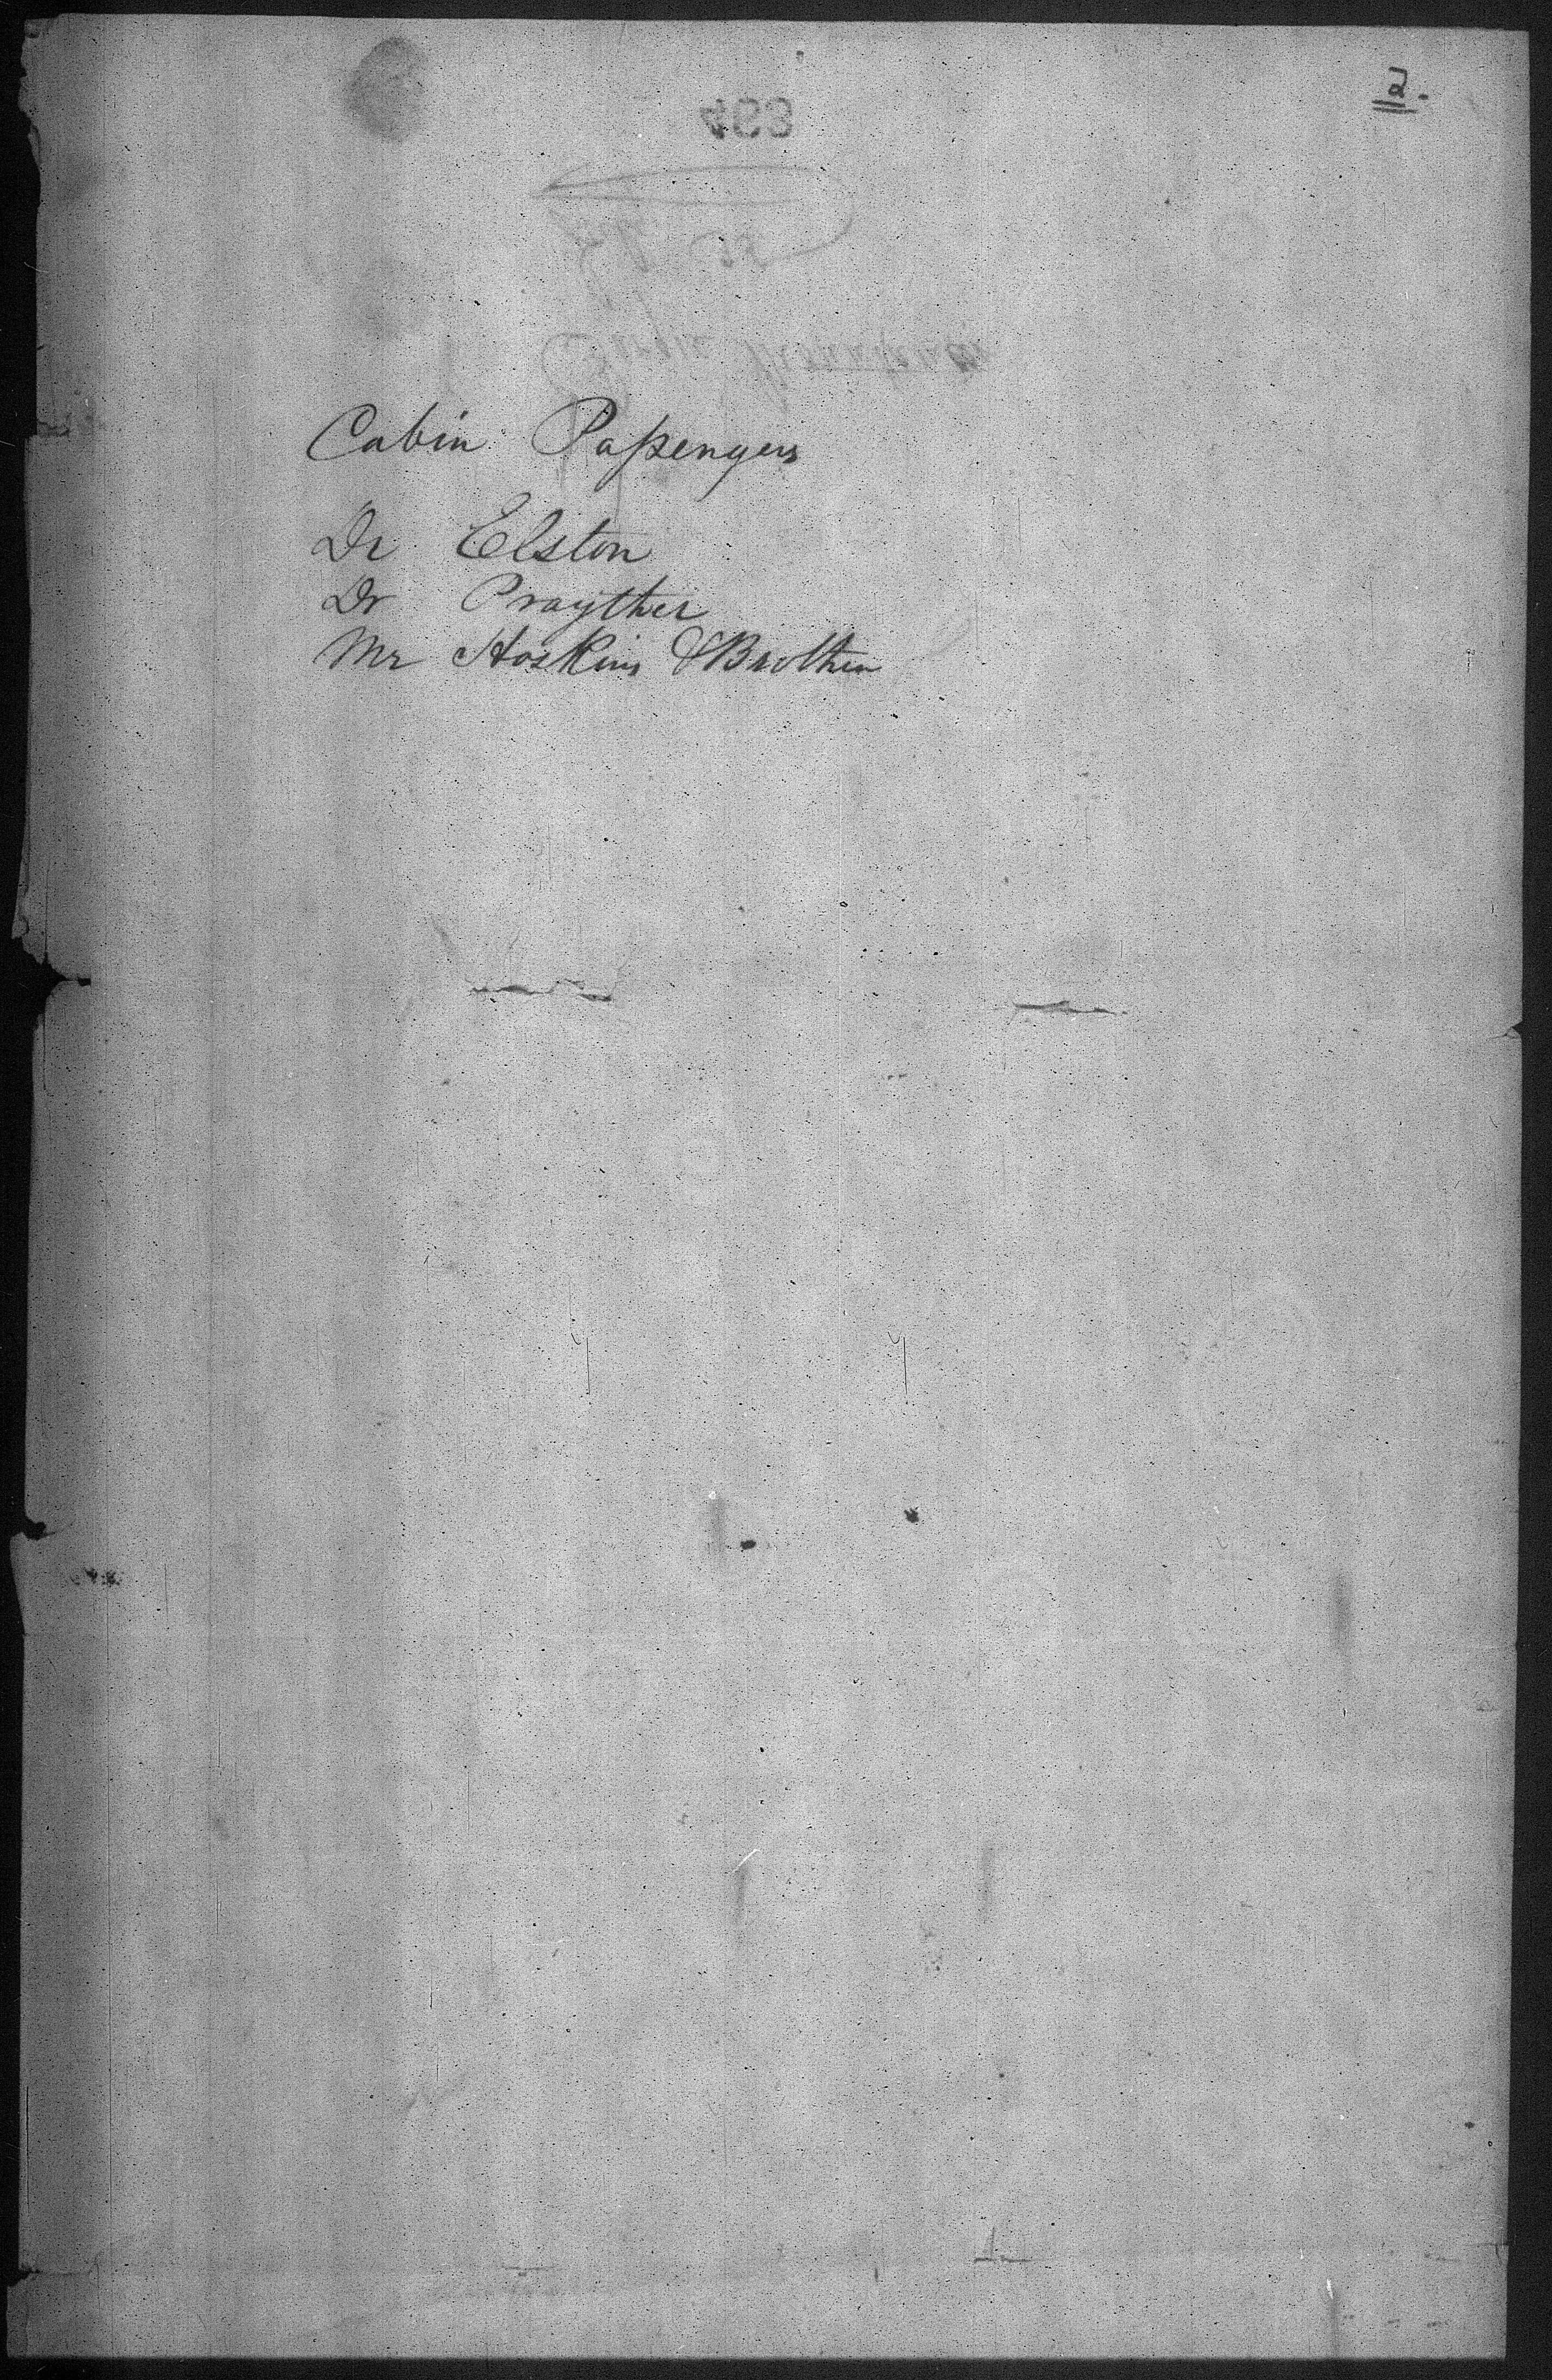 2.
Cabin Passengers
Dr Elston
Dr Prayther
Mr Hoskins & Brother